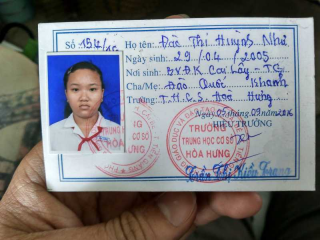 Số 1514/10 Họ tên: Đào Thị Huỳnh Như
Ngày sinh: 29/04/2005
Nơi sinh: BVĐK Cai Lậy - TG
Cha/Mẹ: Đào Quốc Khanh
Trường: T.H.C.S Hòa Hưng
Ngày 05 tháng 09 năm 2016
HIỆU TRƯỞNG
TRƯỜNG
TRUNG HỌC CƠ SỞ
HÒA HƯNG